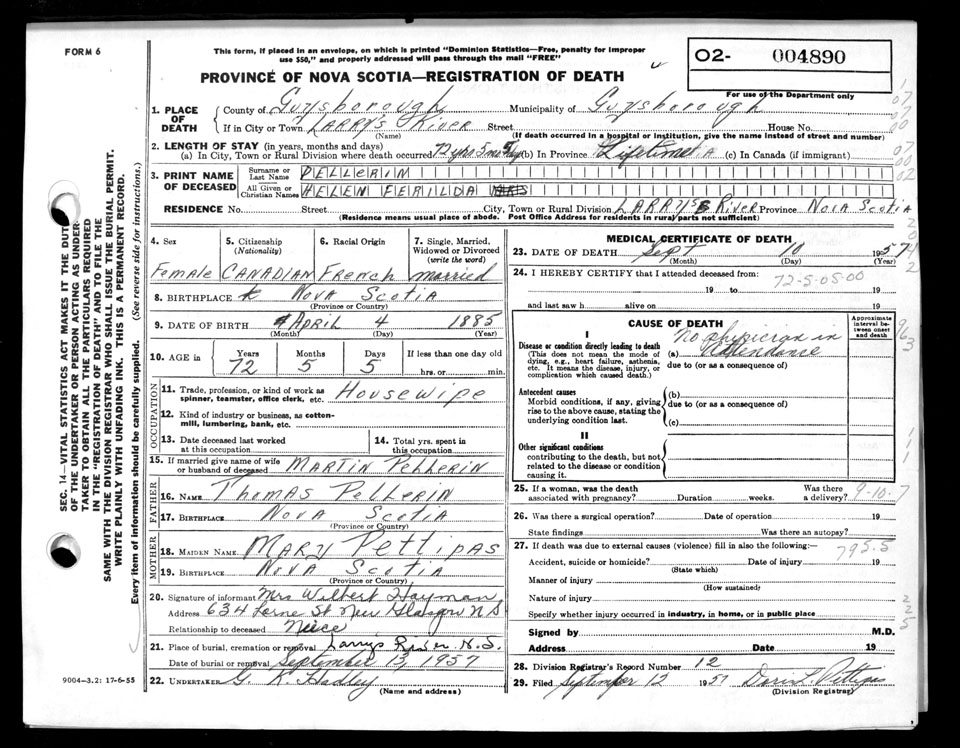 FORM 6
This form, if placed in an envelope, on which is printed "Dominion Statistics—Free, penalty for improper
use $50," and properly addressed will pass through the mail "FREE"
PROVINCE OF NOVA SCOTIA—REGISTRATION OF DEATH
02- 004890
For use of the Department only
1. PLACE OF DEATH
County of Guysborough Municipality of Guysborough
If in City or Town LARRY'S RIVER Street House No.
(Name) (If death occurred in a hospital or institution, give the name instead of street and number)
2. LENGTH OF STAY (in years, months and days)
(a) In City, Town or Rural Division where death occurred 72 yrs 5 mos (b) In Province Lifetime (c) In Canada (if immigrant)
3. PRINT NAME OF DECEASED
Surname or Last Name PELLERIN
All Given or Christian Names HELEN FERILDA
RESIDENCE No. Street City, Town or Rural Division LARRYS River Province NOVA SCOTIA
(Residence means usual place of abode. Post Office Address for residents in rural parts not sufficient)
4. Sex
Female
5. Citizenship (Nationality)
CANADIAN
6. Racial Origin
French
7. Single, Married, Widowed or Divorced (write the word)
married
8. BIRTHPLACE NOVA SCOTIA
(Province or Country)
9. DATE OF BIRTH APRIL 4 1885
(Month) (Day) (Year)
10. AGE in Years Months Days If less than one day old
72 5 5 hrs. or min.
OCCUPATION
11. Trade, profession, or kind of work as
spinner, teamster, office clerk, etc. HOUSEWIFE
12. Kind of industry or business, as cotton-
mill, lumbering, bank, etc.
13. Date deceased last worked
at this occupation
14. Total yrs. spent in
this occupation
15. If married give name of wife
or husband of deceased MARTIN PELLERIN
FATHER
16. NAME THOMAS PELLERIN
17. BIRTHPLACE NOVA SCOTIA
(Province or Country)
MOTHER
18. MAIDEN NAME MARY PETTIPAS
19. BIRTHPLACE NOVA SCOTIA
(Province or Country)
20. Signature of informant Mrs Wilbert Hayman
Address 634 Lorne St New Glasgow N.S
Relationship to deceased Neice
21. Place of burial, cremation or removal Larrys River N.S.
Date of burial or removal September 13, 1957
22. UNDERTAKER G. K. Hadley
(Name and address)
MEDICAL CERTIFICATE OF DEATH
23. DATE OF DEATH Sept 10 1957
(Month) (Day) (Year)
24. I HEREBY CERTIFY that I attended deceased from:
72-5-05-00
19 to 19
and last saw h alive on 19
CAUSE OF DEATH
Approximate interval between onset and death
I
Disease or condition directly leading to death
(This does not mean the mode of
dying, e.g., heart failure, asthenia,
etc. It means the disease, injury, or
complication which caused death.)
(a) No physician in
attendance
due to (or as a consequence of)
Antecedent causes
Morbid conditions, if any, giving
rise to the above cause, stating the
underlying condition last.
(b)
due to (or as a consequence of)
(c)
II
Other significant conditions
contributing to the death, but not
related to the disease or condition
causing it.
25. If a woman, was the death
associated with pregnancy? Duration weeks. Was there
a delivery?
9-10-7
26. Was there a surgical operation? Date of operation 19
State findings Was there an autopsy?
27. If death was due to external causes (violence) fill in also the following:—
795.5
Accident, suicide or homicide? Date of injury 19
(State which)
Manner of injury
(How sustained)
Nature of injury
Specify whether injury occurred in industry, in home, or in public place
Signed by M.D.
Address Date 19
28. Division Registrar's Record Number 12
29. Filed September 12 1957 Doris L Pettipas
(Division Registrar)
SEC. 14—VITAL STATISTICS ACT MAKES IT THE DUTY
OF THE UNDERTAKER OR PERSON ACTING AS UNDER-
TAKER TO OBTAIN ALL THE PARTICULARS REQUIRED
IN THE "REGISTRATION OF DEATH" AND TO FILE THE
SAME WITH THE DIVISION REGISTRAR WHO SHALL ISSUE THE BURIAL PERMIT.
WRITE PLAINLY WITH UNFADING INK. THIS IS A PERMANENT RECORD.
Every item of information should be carefully supplied. (See reverse side for instructions.)
9004—3.2: 17-6-55